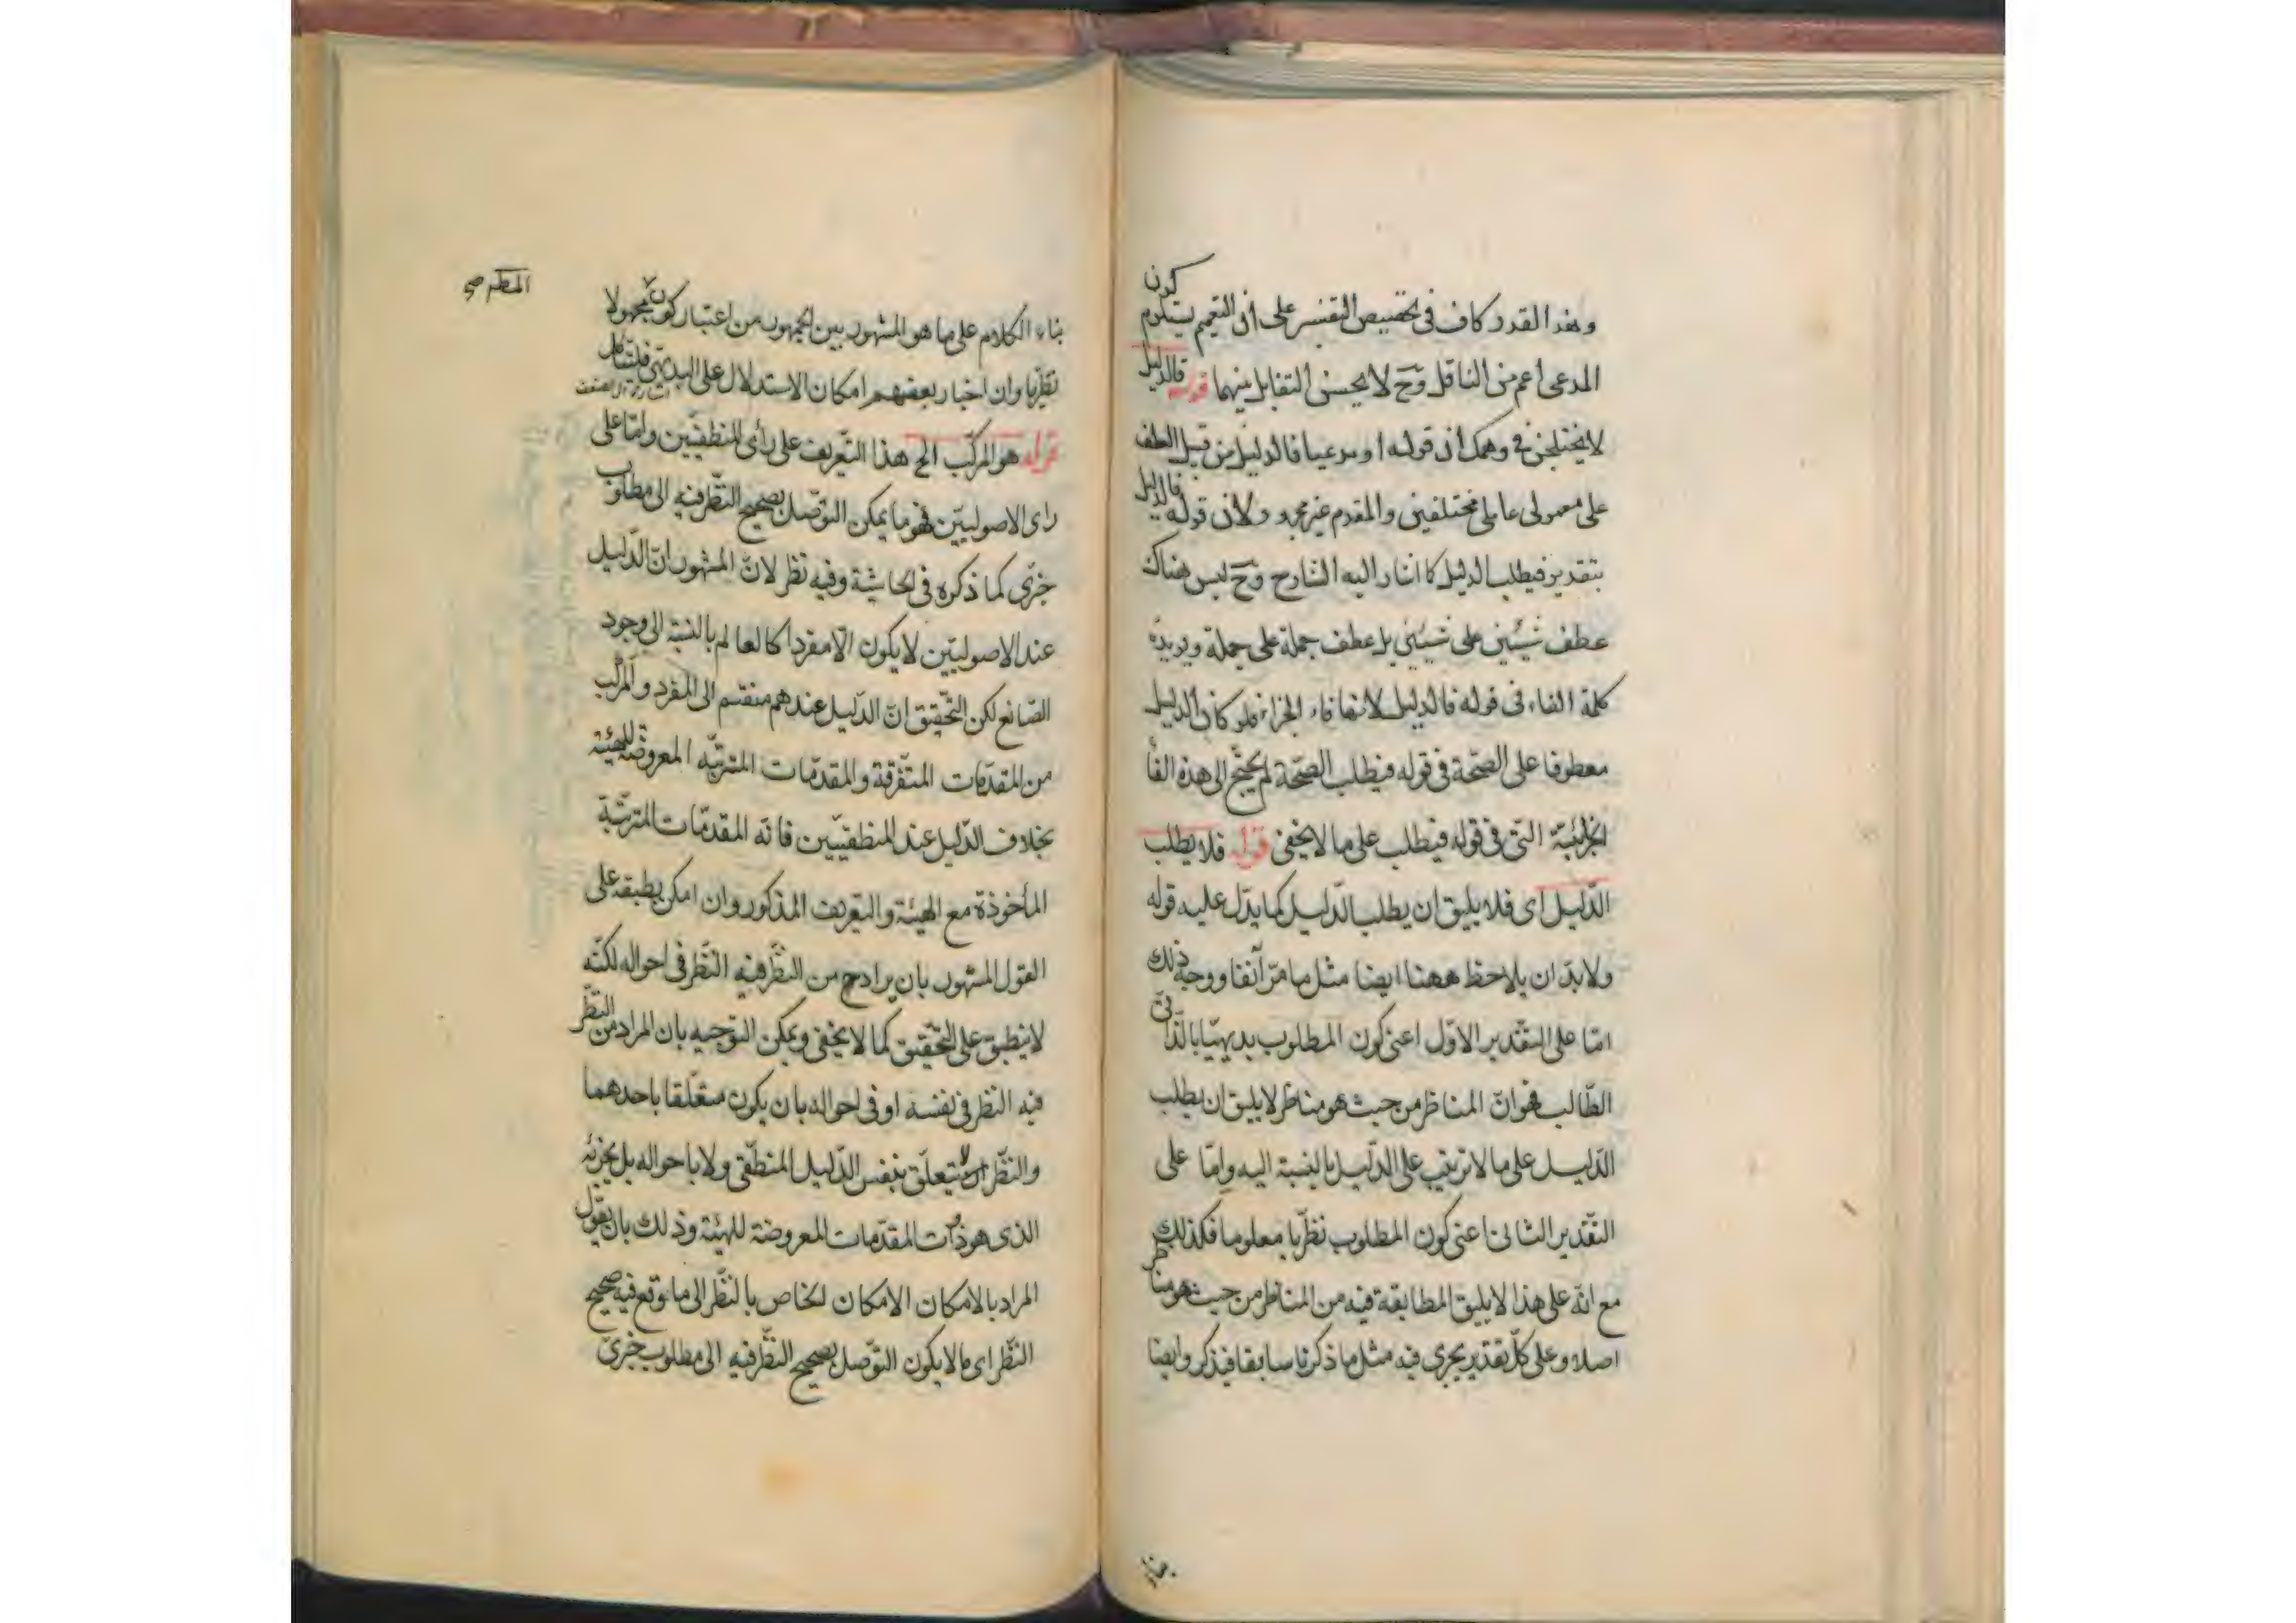 وهذا القدر كاف فى تخصيص التفسير على أن التعميم يستلزم كون
المدعى اعم من الناقل وح لا يحسن التقابل بينهما قوله فالدليل
لا يختلجن فى وهمك ان قوله او مدعيا فالدليل من قبيل العطف
على معمولى عاملى مختلفين والمقدم غير مجرور لان قوله فالدليل
بتقدير فيطلب الدليل كما اشار اليه الشارح وح ليس هناك
عطف شيئين على شيئين بل عطف جملة على جملة ويؤيده
كلمة الفاء فى قوله فالدليل لانها فاء الجزاء فلو كان الدليل
معطوفا على الصّحة فى قوله فيطلب الصّحة لم يحتج الى هذه الفأ
الجزئيّة التى فى قوله فيطلب على ما لا يخفى قوله فلا يطلب
الدّليل اى فلا يليق ان يطلب الدّليل كما يدّل عليه قوله
ولا بدّ ان يلاحظ ههنا ايضا مثل ما مرّ آنفا ووجه ذلك
امّا على التقدير الاوّل اعنى كون المطلوب بديهيّا بالذّات
الطّالب فهو انّ المناظر من حيث هو مناظر لا يليق ان يطلب
الدّليل على ما لا ترتيب على الدّليل بالنسبة اليه وامّا على
التّقدير الثانى اعنى كون المطلوب نظريّا معلوما فكذلك
مع انّه على هذا لا يليق المطابقة فيه من المناظر من حيث هو مناظر
اصلا وعلى كلّ تقدير يجرى فيه مثل ما ذكرنا سابقا فيذكر وايضا
بناء الكلام على ما هو المشهور بين الجمهور من اعتبار كون مجهولا
نظريّا وان اختار بعضهم امكان الاستدلال على البديهىّ فليتأمل
قوله هو المركّب الخ هذا التّعريف على رأى المنطقيّين وامّا على
راى الاصوليّين فهو ما يمكن التوّصل بصحيح النّظر فيه الى مطلوب
خبرىّ كما ذكره فى الحاشية وفيه نظر لانّ المشهور انّ الدّليل
عند الاصوليّين لا يكون الّا مفردا كالعالم بالنسبة الى وجود
الصّانع لكن التّحقيق انّ الدّليل عندهم منقسم الى المفرد والمركّب
من المقدّمات المتّفرقة والمقدّمات المترتبّه المعروضة للهيئة
بخلاف الدّليل عند المنطقيّين فانّه المقدّمات المترتّبة
المأخوذة مع الهيئة والتعريف المذكور وان امكن تطبيقه على
القول المشهور بان يراد ح من النّظر فيه النّظر فى احواله لكنّه
لا ينطبق على التّحقيق كما لا يخفى ويمكن التوّجيه بان المراد من النّظر
فيه النّظر فى نفسه او فى احواله بان يكون متعلّقا باحدهما
والنّظر لا يتعلّق بنفس الدّليل المنطقّى ولا باحواله بل بجزئه
الذى هو ذوات المقدّمات المعروضة للهيئة وذلك بان يقول
المراد بالامكان الامكان الخاص بالنّظر الى ما توقع فيه صحيح
النّظر اى ما لا يكون التوّصل بصحيح النّظر فيه الى مطلوب خبرىّ